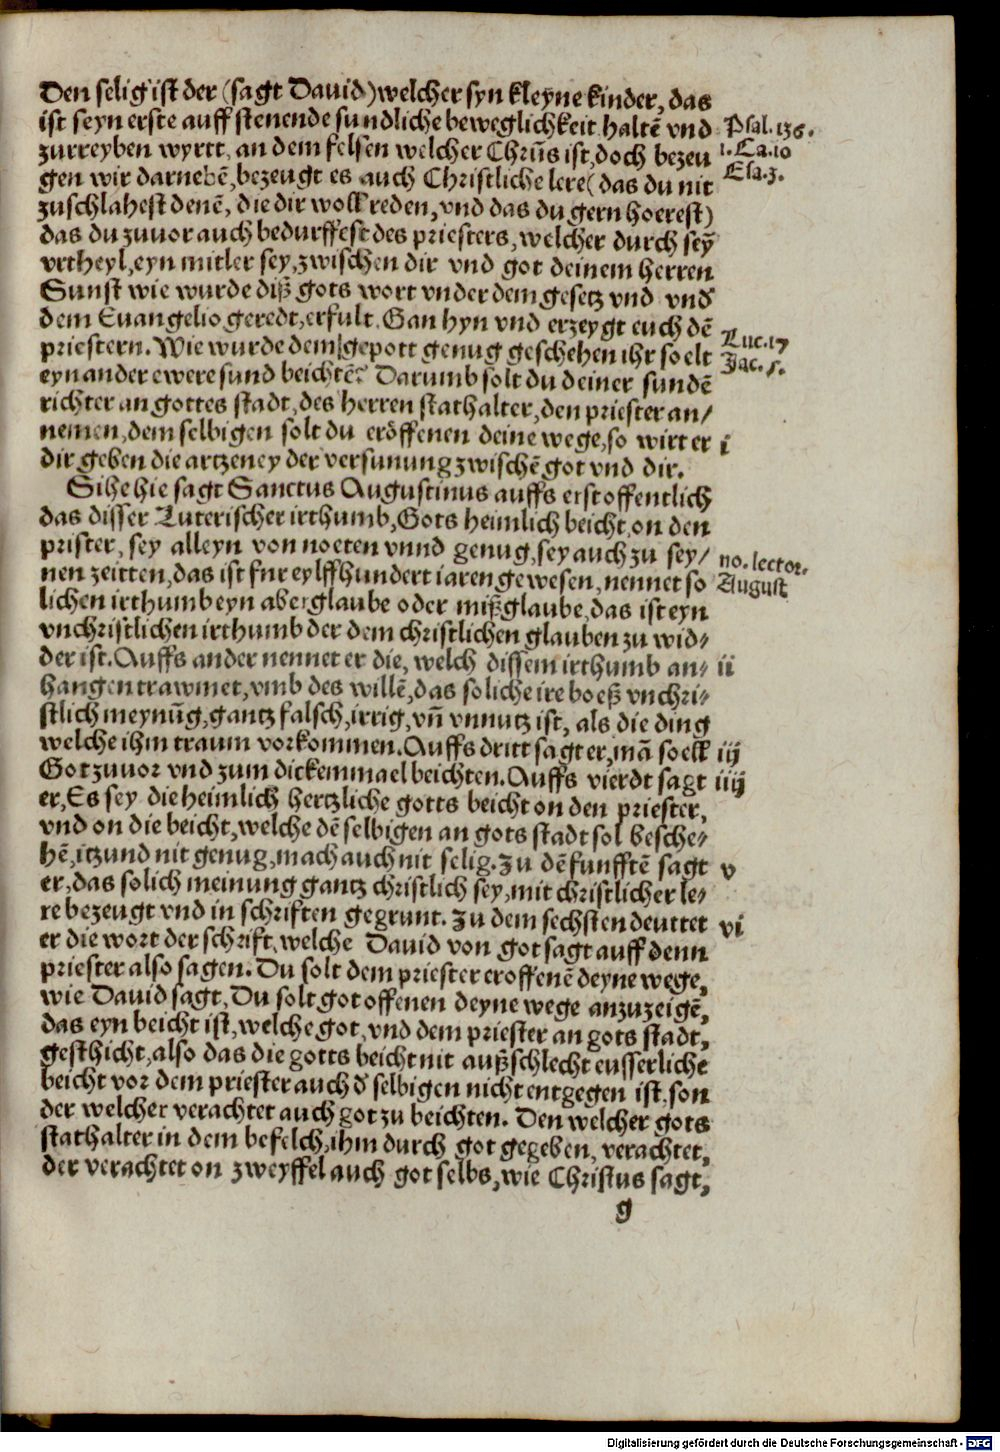 Den selig ist der (sagt Dauid) welcher syn kleyne kinder, das
ist seyn erste auff stenende sundliche beweglichkeit haltē vnd
Psal. 136.
zurreyben wyrtt, an dem felsen welcher Chrūs ist, doch bezeu
1. Ca. 10
gen wir darnebē, bezeugt es auch Christliche lere (das du nit
Esa. 3.
zuschlahest denē, die dir woll reden, vnd das du gern hoerest)
das du zuuor auch bedurffest des priesters, welcher durch seȳ
vrtheyl, eyn mitler sey, zwischen dir vnd got deinem herren
Sunst wie wurde diß gots wort vnder dem gesetz vnd vnd̓
dem Euangelio geredt, erfult. Gan hyn vnd erzeygt euch dē
Luc. 17
priestern. Wie wurde dem gepott genug geschehen ihr soelt
Jac. 5.
eynander ewere sund beichtē? Darumb solt du deiner sundē
richter an gottes stadt, des herren stathalter, den priester an/
nemen, dem selbigen solt du eröffenen deine wege, so wirt er
i
dir geben die artzeney der versunung zwischē got vnd dir.
Sihe hie sagt Sanctus Augustinus auffs erst offentlich
das disser Luterischer irthumb, Gots heimlich beicht, on den
prister, sey alleyn von noeten vnnd genug, sey auch zu sey/
no. lector.
nen zeitten, das ist fur eylffhundert iaren gewesen, nennet so
August
lichen irthumb eyn aberglaube oder mißglaube, das ist eyn
vnchristlichen irthumb der dem christlichen glauben zu wid-
der ist. Auffs ander nennet er die, welch dissem irthumb an-
ii
hangen trawmet, vmb des willē, das soliche ire boeß vnchri-
stlich meynūg, gantz falsch, irrig, vn̄ vnnutz ist, als die ding
welche ihm traum vorkommen. Auffs dritt sagt er, mā soell
iij
Got zuuor vnd zum dickemmael beichten. Auffs vierdt sagt
iiij
er, Es sey die heimlich hertzliche gotts beicht on den priester,
vnd on die beicht, welche dē selbigen an gots stadt sol besche-
hē, itzund nit genug, mach auch nit selig. Zu dē funfftē sagt
v
er, das solich meinung gantz christlich sey, mit christlicher le-
re bezeugt vnd in schriften gegrunt. Zu dem sechsten deuttet
vi
er die wort der schrift, welche Dauid von got sagt auff denn
priester also sagen. Du solt dem priester eroffenē deyne wege,
wie Dauid sagt, Du solt got offenen deyne wege anzuzeigē,
das eyn beicht ist, welche got, vnd dem priester an gots stadt,
gesthicht, also das die gotts beicht nit außschlecht eusserliche
beicht vor dem priester auch d̓ selbigen nicht entgegen ist, son
der welcher verachtet auch got zu beichten. Den welcher gots
stathalter in dem befelch, ihm durch got gegeben, verachtet,
der verachtet on zweyffel auch got selbs, wie Christus sagt,
g
Digitalisierung gefördert durch die Deutsche Forschungsgemeinschaft - DFG